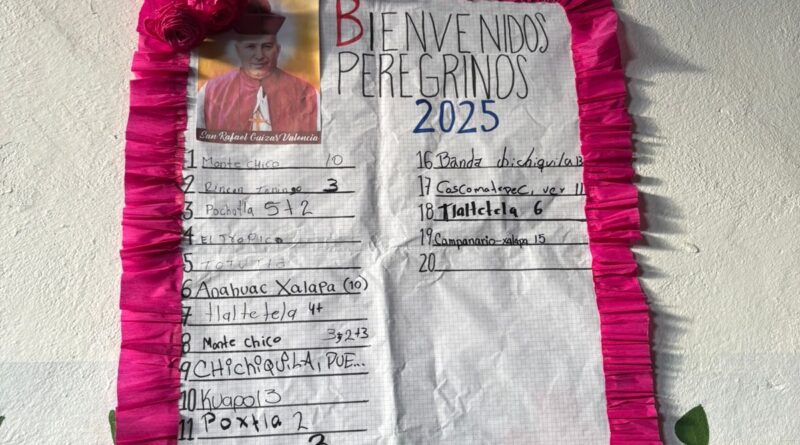 BIENVENIDOS
PEREGRINOS
2025
San Rafael Guizar Valencia
1 Monte chico 10
2 Rincon 3
3 Pochotla 5+2
4 El Trapico
5 TOTUTLA
6 Anahuac Xalapa (10)
7 tlaltetela 4+
8 Monte chico 3,2+3
9 CHICHIQUILA, PUE...
10 Kuapol 3
11 Poxtla 2
3
16 Banda chichiquila 13
17 Coscomatepec, ver 11
18 Tlaltetela 6
19 Campanario-xalapa 15
20